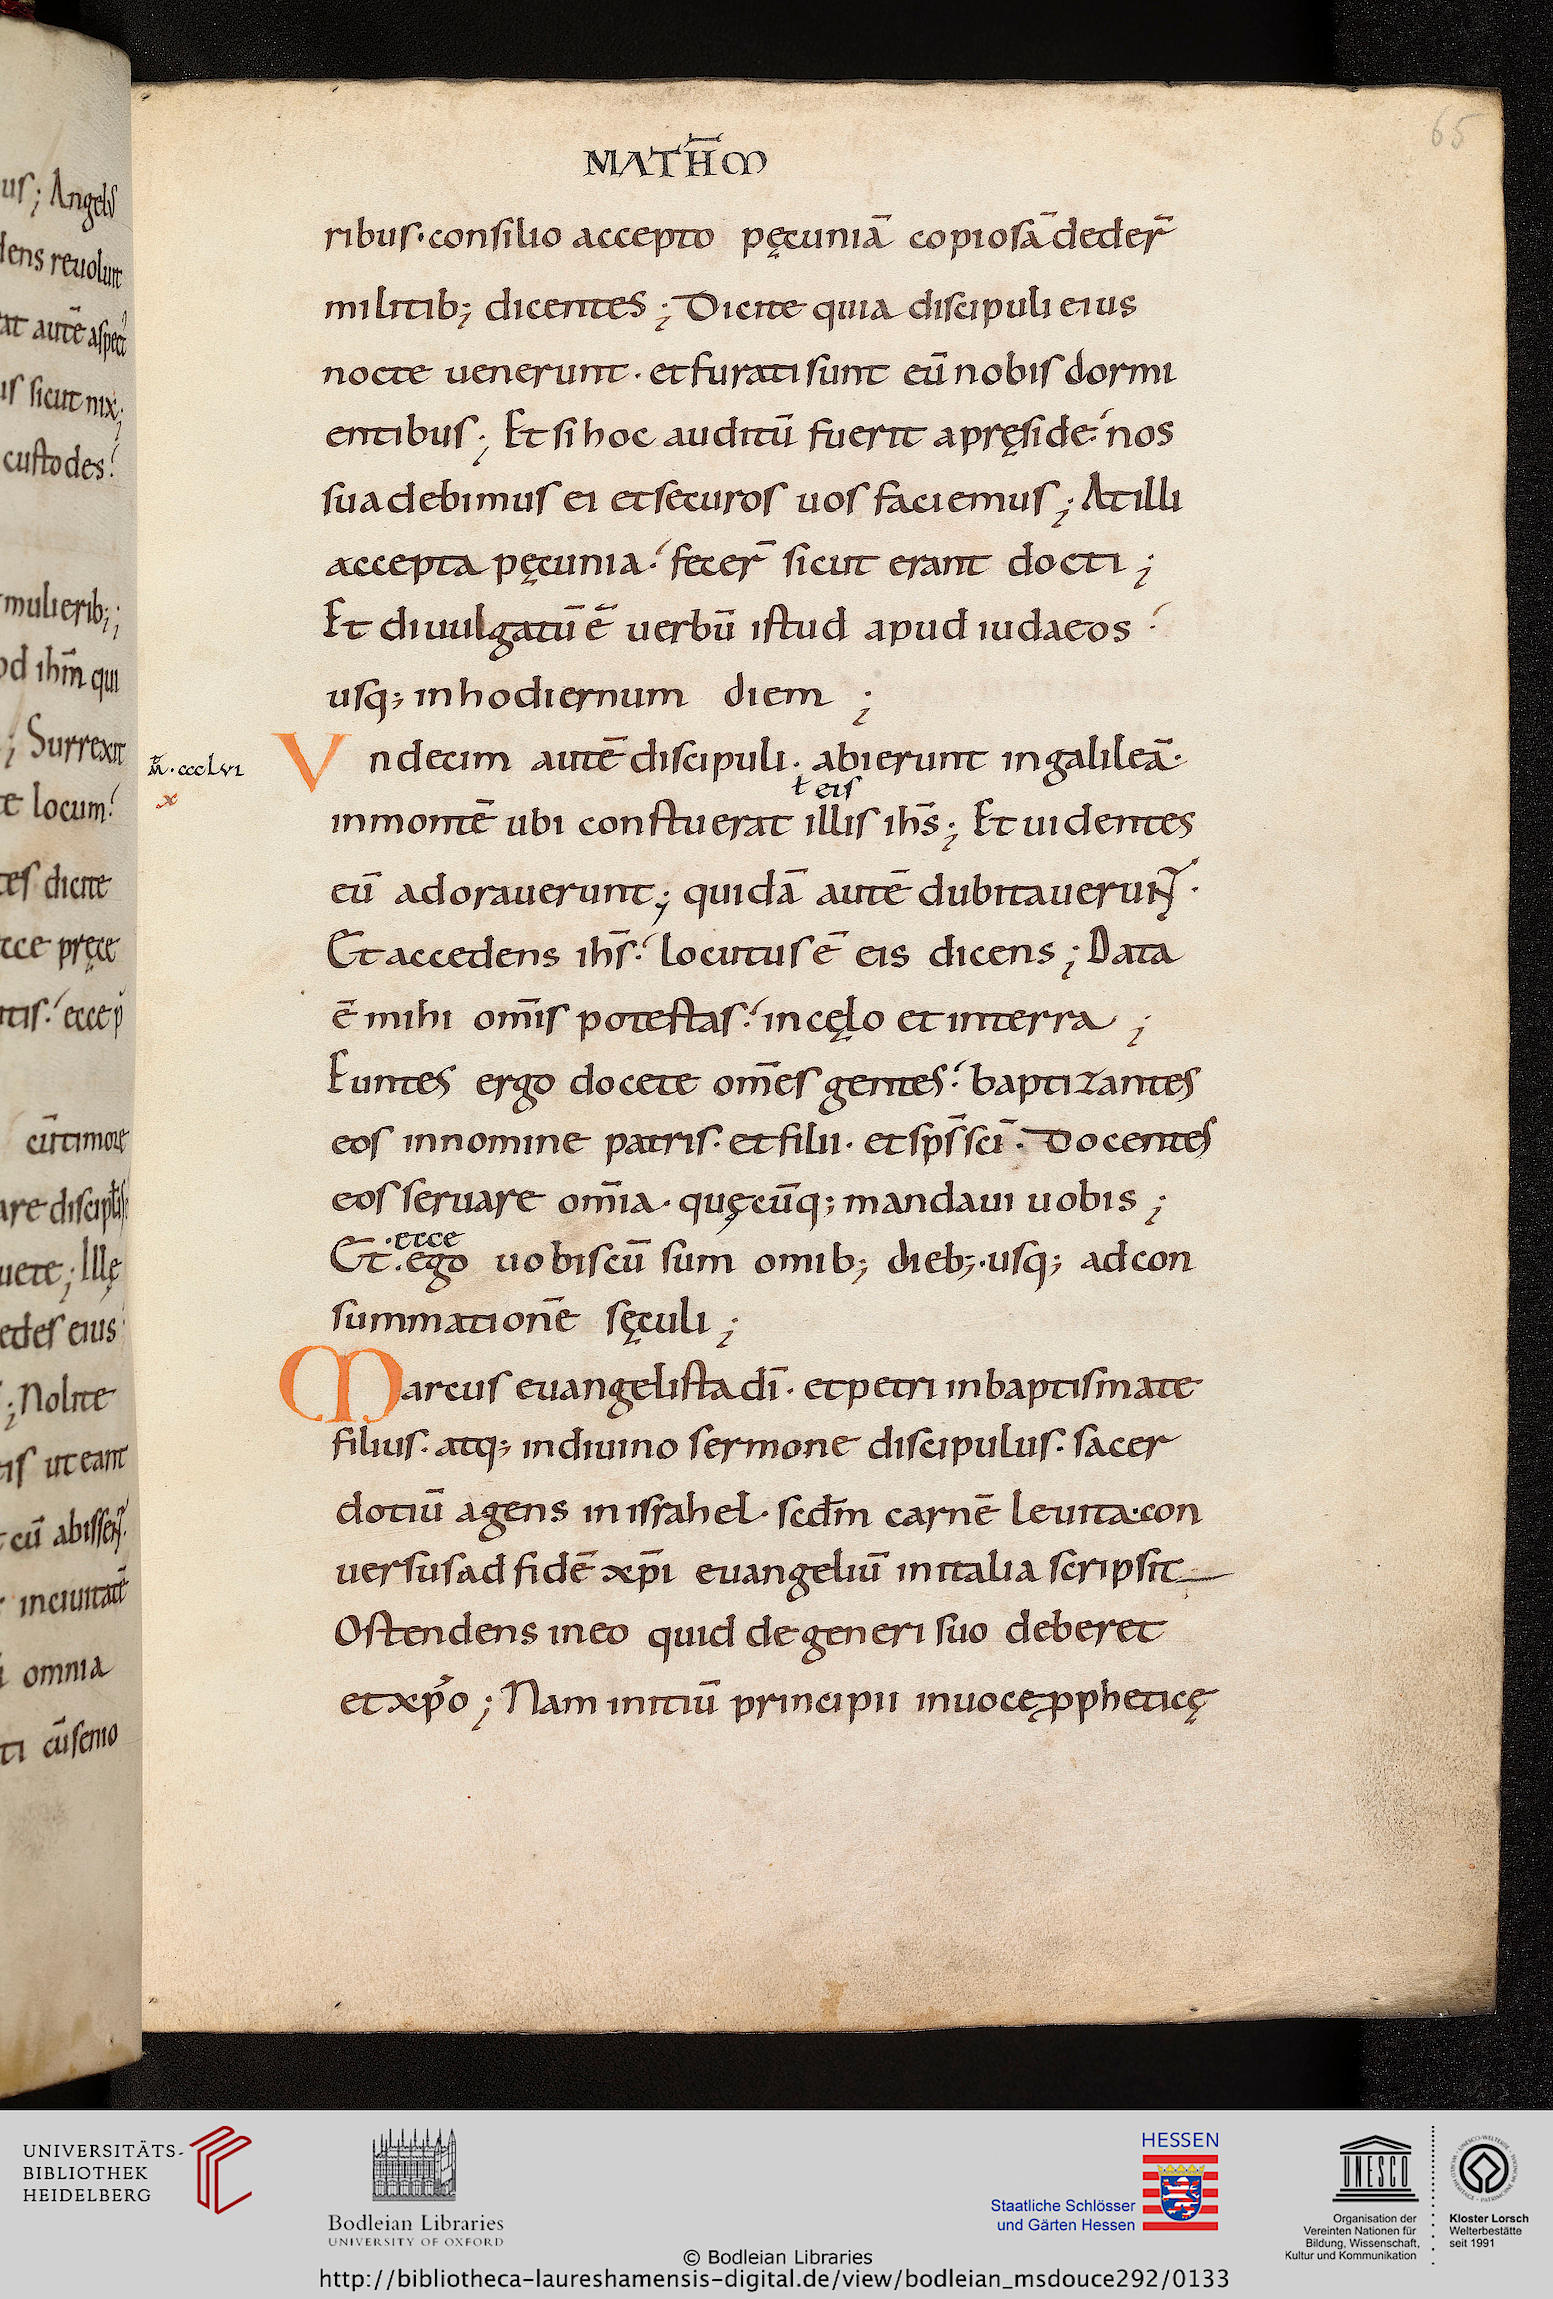 us; Angelus
dens reuoluit
at autē aspect
us sicut nix;
custodes:
mulierib;;
od ihm̄ qui
; Surrexit
e locum:
tes dicite
cce pręce
itis: ecce p
cūtimore
are discipulis
uete; Illę
edes eius
; Nolite
is ut eant
cū abissent.
in ciuitatē
omnia
ti cūsenio
65
MATH̄M
ribus· consilio accepto pęcuniā copiosā deder̄
militib; dicentes; Dicite quia discipuli eius
nocte uenerunt· et furati sunt eū nobis dormi
entibus; Et si hoc auditū fuerit a pręside: nos
suadebimus ei et securos uos faciemus; At illi
accepta pęcunia: fecer̄ sicut erant docti;
Et diuulgatū ē uerbū istud apud iudaeos:
usq; in hodiernum diem;
M̄. ccclvi
x
Vndecim autē discipuli· abierunt in galileā·
ł eis
in montē ubi constuerat illis ihs̄; Et uidentes
eū adorauerunt; quidā autē dubitauerunt·
Et accedens ihs̄: locutus ē eis dicens; Data
ē mihi om̄is potestas: in cęlo et in terra;
Euntes ergo docete om̄es gentes: baptizantes
eos in nomine patris· et filii· et sps̄ sc̄i· Docentes
eos seruare om̄ia· quęcūq; mandaui uobis;
·ecce
Et· ego uobiscū sum omib; dieb;· usq; ad con
summationē sęculi;
Marcus euangelista dī· et petri in baptismate
filius· atq; in diuino sermone discipulus· sacer
dotiū agens in israhel· scd̄m carnē leuita· con
uersus ad fidē xp̄i euangeliū in italia scripsit
Ostendens in eo quid de generi suo deberet
et xp̄o; Nam initiū principii in uocę ppheticę
UNIVERSITÄTS-
BIBLIOTHEK
HEIDELBERG
Bodleian Libraries
UNIVERSITY OF OXFORD
HESSEN
Staatliche Schlösser
und Gärten Hessen
UNESCO
Organisation der
Vereinten Nationen für
Bildung, Wissenschaft,
Kultur und Kommunikation
Kloster Lorsch
Welterbestätte
seit 1991
© Bodleian Libraries
http://bibliotheca-laureshamensis-digital.de/view/bodleian_msdouce292/0133